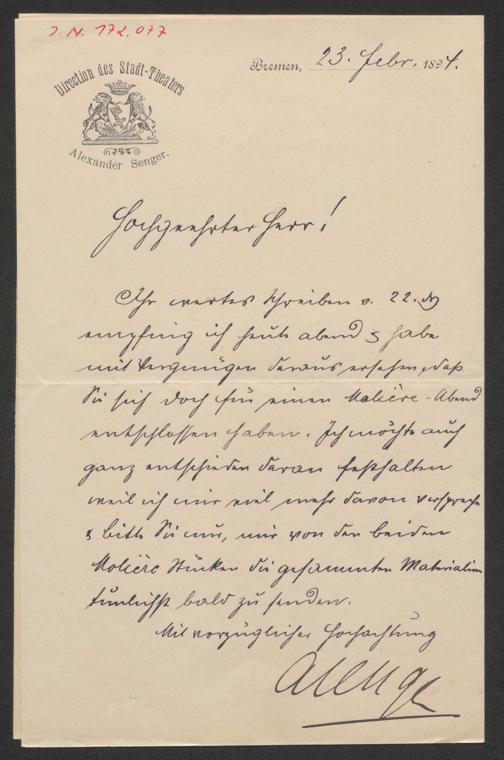 J.N. 172.077
Direction des Stadt-Theaters
Alexander Senger.
Bremen, 23. Febr. 1894.
Hochgeehrter Herr!
Ihr wertes Schreiben v. 22. ds
empfing ich heute abend & habe
mit Vergnügen daraus ersehen, daß
Sie sich doch für einen Molière-Abend
entschlossen haben. Ich möchte auch
ganz entschieden daran festhalten
weil ich mir viel mehr davon verspreche
& bitte Sie nur, mir von den beiden
Molière Stücken die gesammten Materialien
tunlichst bald zu senden.
Mit vorzüglicher Hochachtung